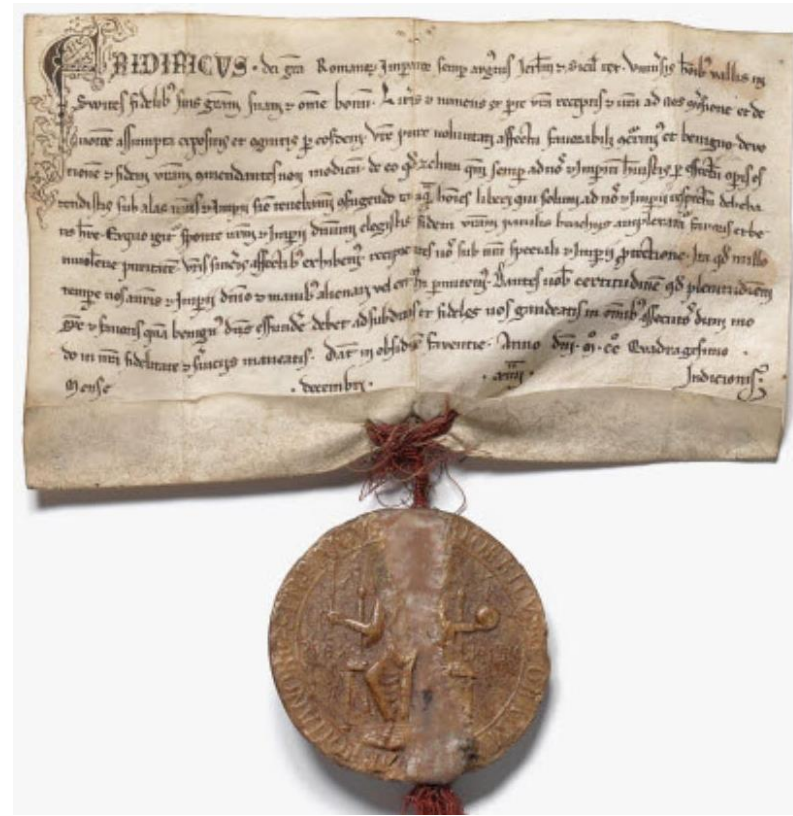 FRIDIRICVS · dei gr̄a Romanoꝝ Imperator semp augustus Jerlm̄ ⁊ Sicil̄ rex · Vniu̓sis ho̅ib̓ vallis in
Swites fidelib̓ suis gr̄am suam ⁊ om̄e bonum · Lr̄is ⁊ nunciis ex p̄te vr̄a receptis ⁊ vr̄a ad nos ꝯu̓sione et de
uotōe assumpta expositis et cognitis p̱ eosdem · Vr̄e pure uoluntati affectu fauorabili ꝯcurim̓ et benigno · deuo
tionē ⁊ fidem vr̄am ꝯmendantes non modicū · de eo qđ zelum quē semper ad nos̓ ⁊ Imp̱iū h̄uistis p̱ effectū op̱is os
tendistis sub alas nr̄as ⁊ Imp̱ii sic̄ tenebamī ꝯfugendo tamq̄ ho̅ies liberi qui solum ad nos̓ ⁊ Imp̱iū respectū debeba
tis h̄re · Ex quo igit̓ sponte nr̄um ⁊ Imp̱ii dn̄ium elegistis fidem vr̄am patulis brachiis amplexam̓ fauoris et be
niuolentie puritatē vr̄is sinc̓is affectib̓ exhibem̓ recipientes vos̓ sub nr̄a speciali ⁊ Imp̱ii p̱tectione · Ita qđ nullo
tempore uos a nr̄is ⁊ Imp̱ii dn̄io ⁊ manib̓ alienari vel ext̓hi p̱mittem̓ · Dantes uob̄ certitudinē qđ plenitudinem
gr̄e ⁊ fauoris quā benign̓ dn̄s effundē debet ad subditos et fideles uos gaudeatis in om̄ib̓ assecutos̓ dum mo
do in nr̄a fidelitate ⁊ s̓uiciis maneatis · Dat̄ in obsid̄ fauentie · Anno Dn̄i · M̊ · cc̊ Quadragesimo ·
Mense · decembri · · xiiii · Indictionis ·